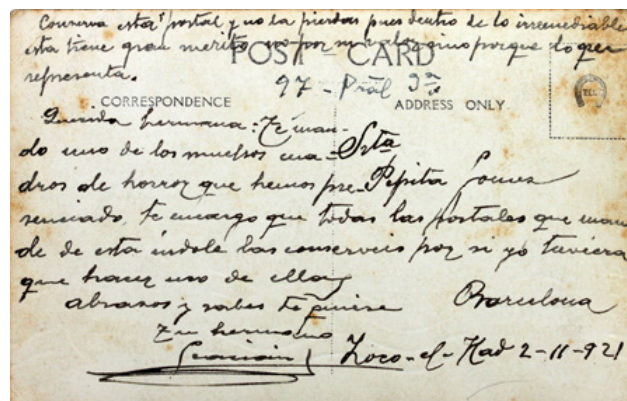 Conserva esta postal y no la pierdas pues dentro de lo irremediable
esta tiene gran merito, no por su valor sino porque lo que
representa.
POST CARD
97 - Pral 3ª
CORRESPONDENCE
ADDRESS ONLY
Querida hermana: Te man-
do uno de los muchos cua-
dros de horror que hemos pre-
senciado, te encargo que todas las postales que man
de de esta indole las conserveis por si yo tuviera
que hacer uso de ellas
abrasos y sabes te quiere
tu hermano
Srta
Pepita Gomez
Barcelona
Zoco-el-Had 2-11-921